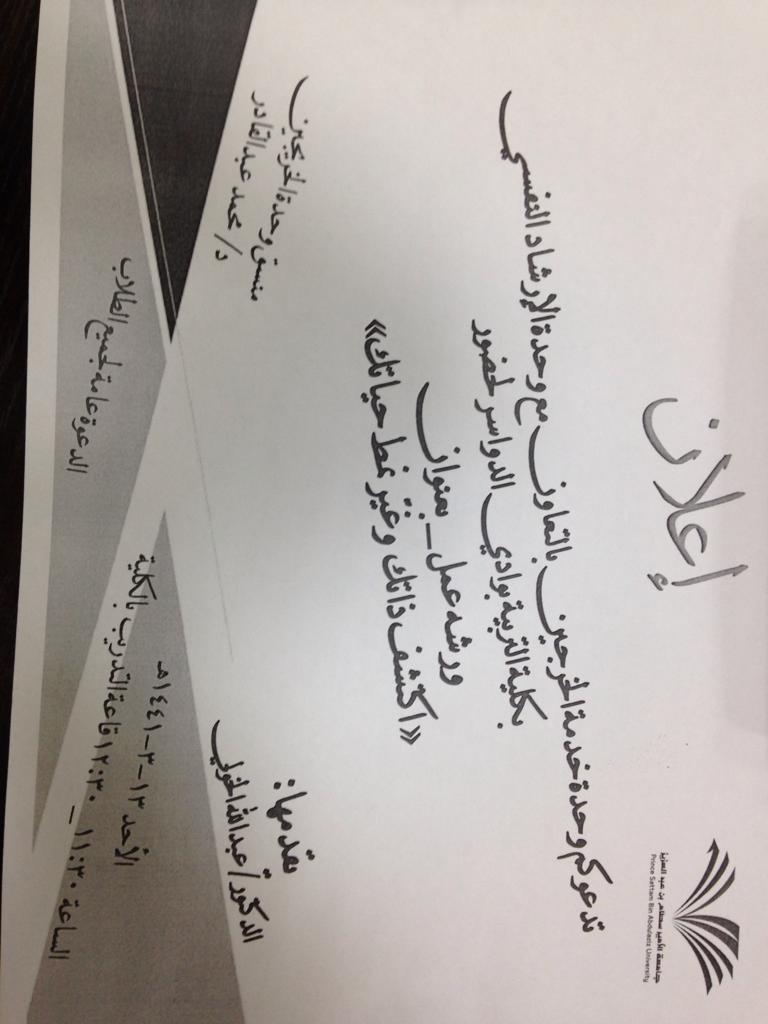 جامعة الأمير سطام بن عبد العزيز
Prince Sattam Bin Abdulaziz University
إعلان
تدعوكم وحدة خدمة الخرجين بالتعاون مع وحدة الإرشاد النفسي
بكلية التربية بوادي الدواسر لحضور
ورشه عمل - بعنوان
«اكتشف ذاتك وغيّر نمط حياتك»
يقدمها:
الدكتور/ عبدالله الخولي
منسق وحدة الخريجين
د/ محمد عبدالقادر
الأحد ١٣-٣-١٤٤١هـ
الساعة ١١:٣٠ – ١٢:٣٠ قاعة التدريب بالكلية
الدعوة عامة لجميع الطلاب